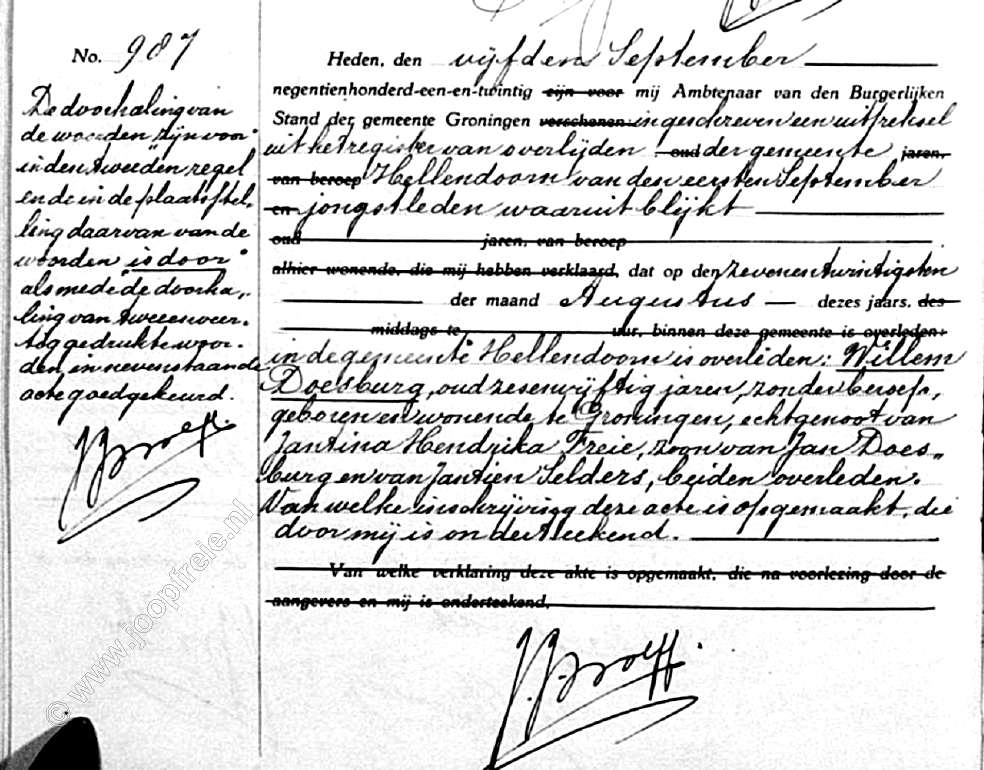 No. 987
De doorhaling van
de woorden „zijn voor"
in den tweeden regel
en de in de plaatsstel„
ling daarvan van de
woorden „is door"
alsmede de doorha„
ling van twee en veer„
tig gedrukte woor„
den, in nevenstaande
acte goedgekeurd.
Heden, den vijfden September
negentienhonderd-een-en-twintig zijn voor mij Ambtenaar van den Burgerlijken
Stand der gemeente Groningen verschenen: ingeschreven een uittreksel
uit het register van overlijden oud der gemeente jaren,
van beroep Hellendoorn van den eersten September
en jongstleden waaruit blijkt
oud jaren, van beroep
alhier wonende, die mij hebben verklaard, dat op den zevenentwintigsten
der maand Augustus dezes jaars, des
middags te uur, binnen deze gemeente is overleden:
in de gemeente Hellendoorn is overleden: Willem
Doesburg, oud zesenvijftig jaren, zonder beroep,
geboren en wonende te Groningen, echtgenoot van
Jantina Hendrika Freie, zoon van Jan Does„
burg en van Jantien Selders, beiden overleden.
Van welke inschrijving deze acte is opgemaakt, die
door mij is onderteekend.
Van welke verklaring deze akte is opgemaakt, die na voorlezing door de
aangevers en mij is onderteekend.
© www.joopfreie.nl